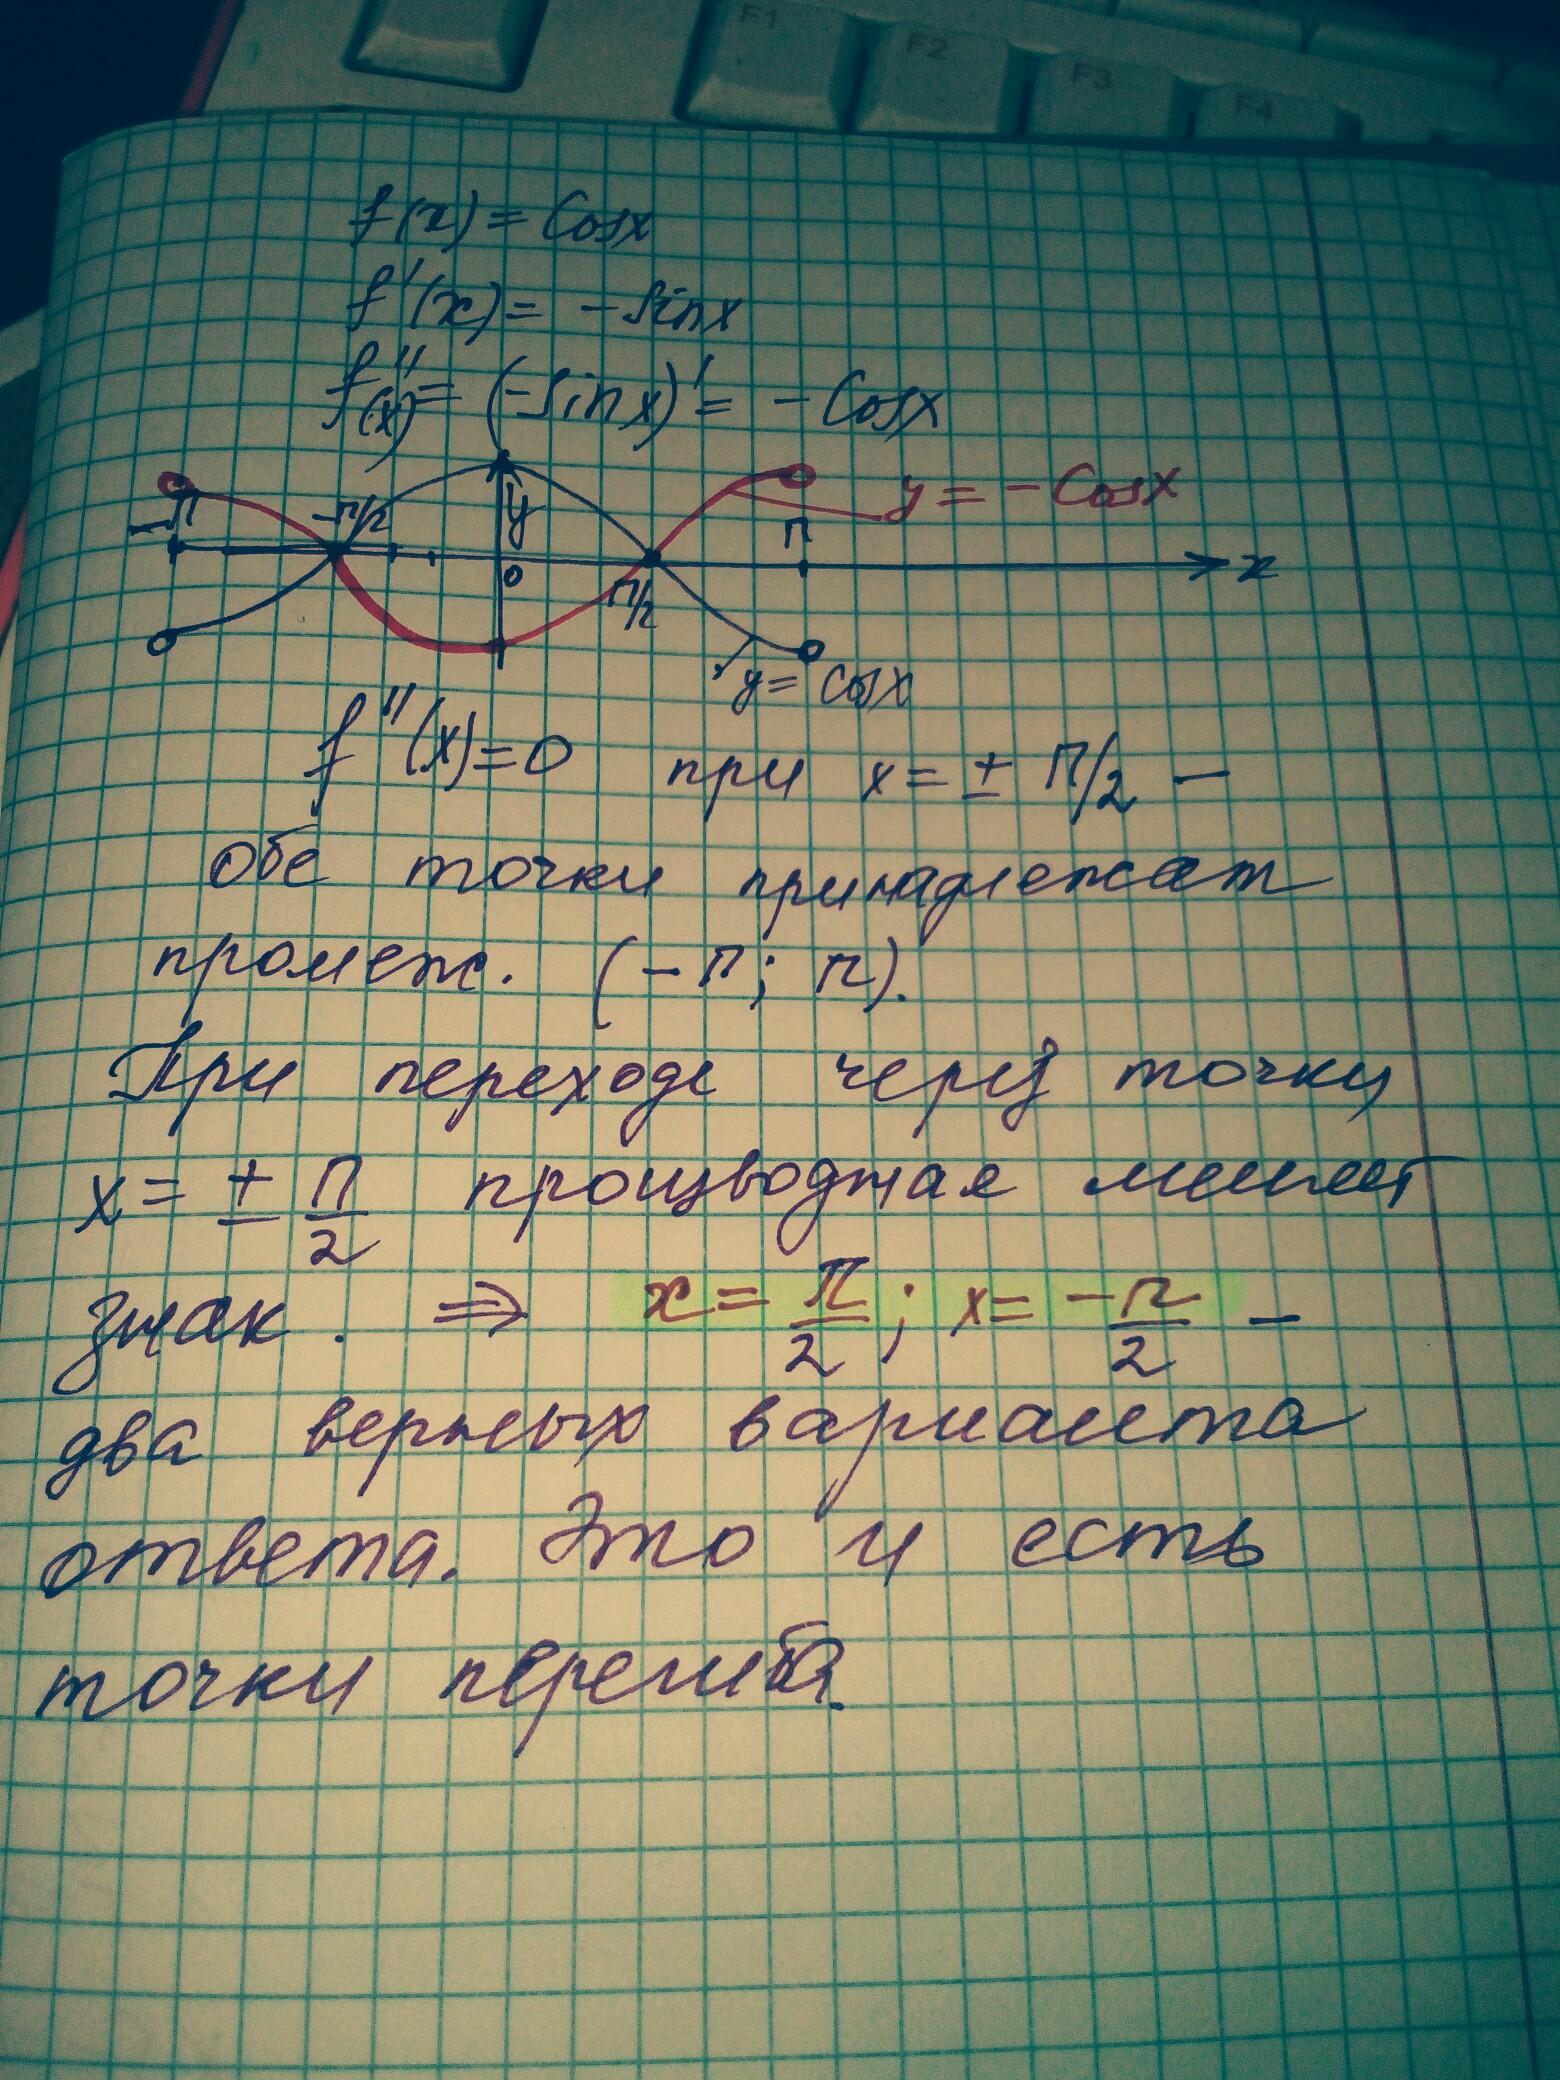 F1
F2
F3
F4
f(x) = Cosx
f'(x) = -sinx
f''(x) = (-sinx)' = -Cosx
y = -Cosx
-π
-π/2
y
π
0
π/2
x
y = cosx
f''(x)=0 при x = ± π/2 —
Обе точки принадлежат
промеж. (-π; π).
При переходе через точку
x = ± π/2 производная меняет
знак. ⇒ x = π/2; x = -π/2 —
два верных варианта
ответа. Это и есть
точки перегиба.